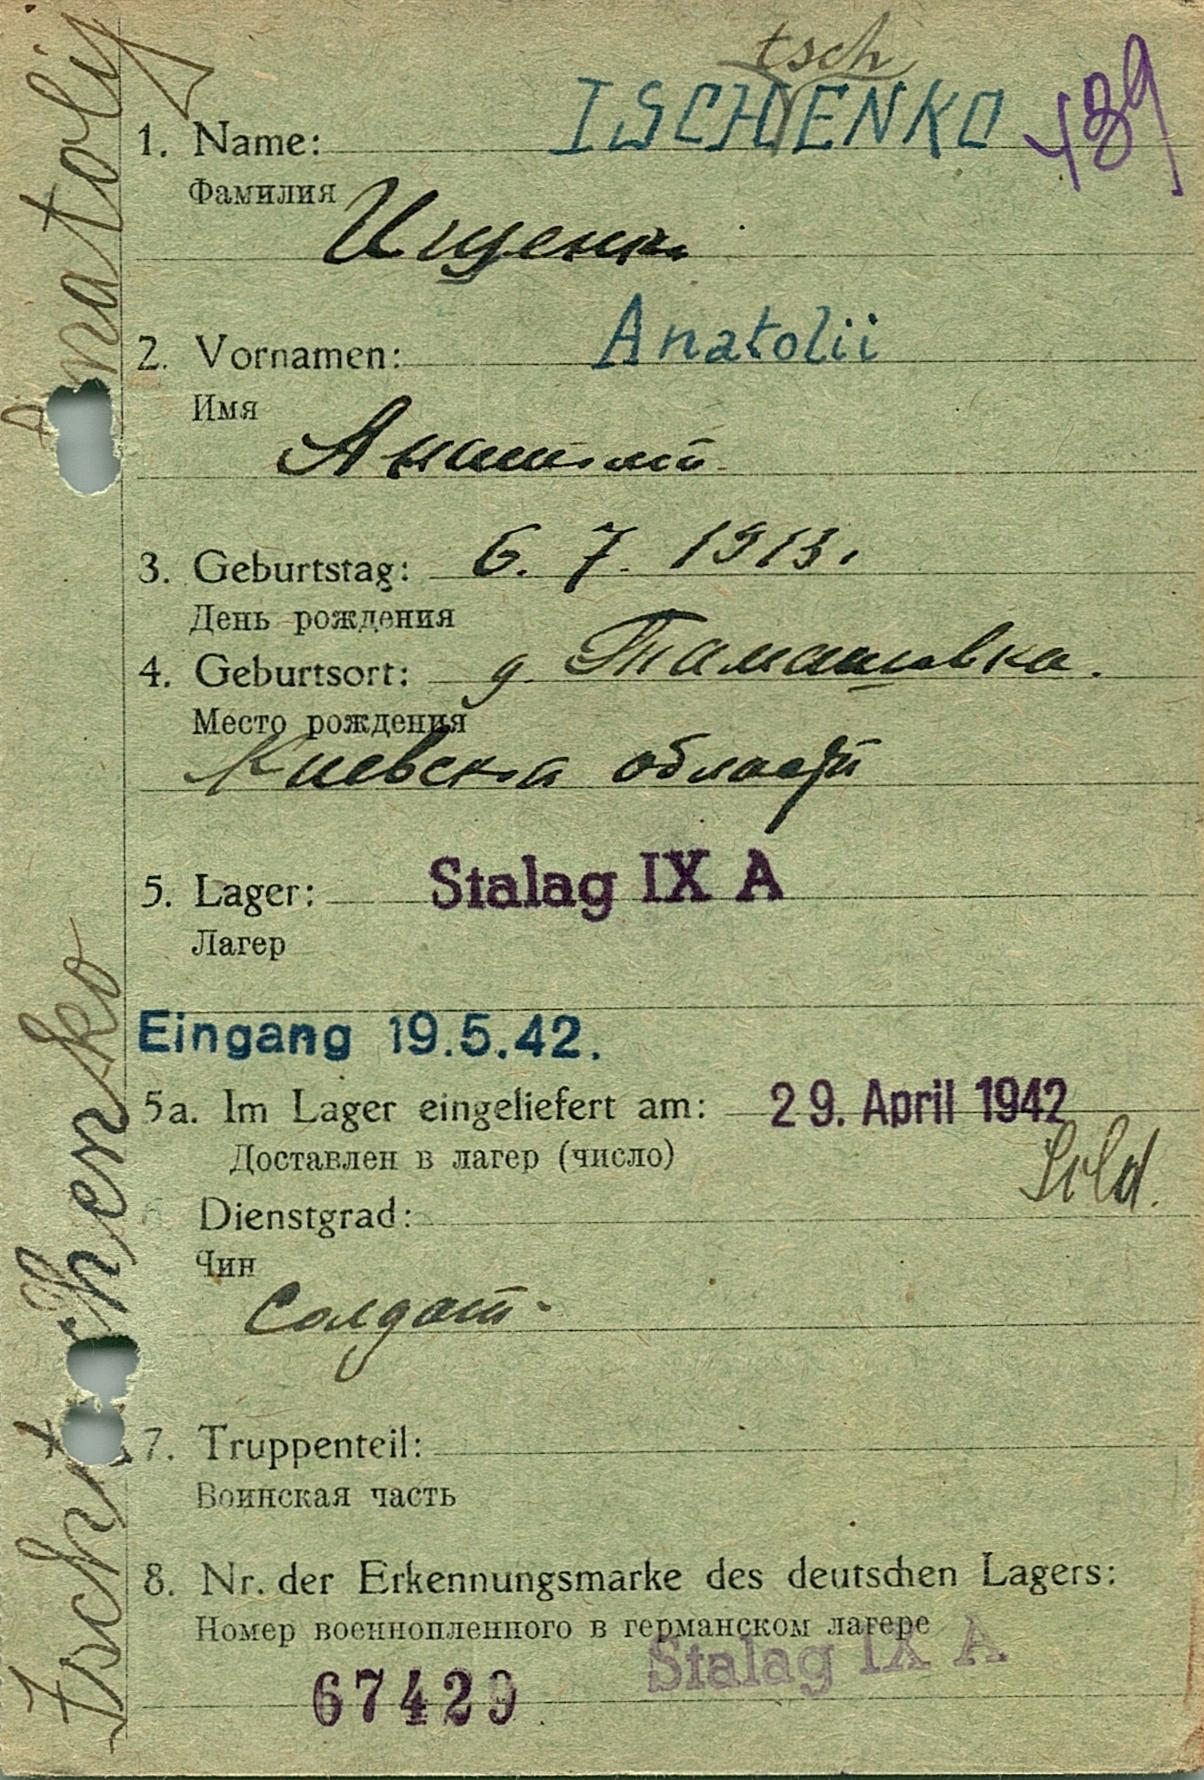 tsch
1. Name: ISCHENKO 439
Фамилия
Ищенко
2. Vornamen: Anatolii
Имя
Анатолий
3. Geburtstag: 6. 7. 1913.
День рождения
4. Geburtsort: д. Томашовка.
Место рождения
Киевской области
5. Lager: Stalag IX A
Лагер
Eingang 19.5.42.
5a. Im Lager eingeliefert am: 29. April 1942
Доставлен в лагер (число)
Sold.
6. Dienstgrad:
Чин
Солдат.
7. Truppenteil:
Воинская часть
8. Nr. der Erkennungsmarke des deutschen Lagers:
Номер военнопленного в германском лагере
Stalag IX A
67429
Ischtschenko Anatolij